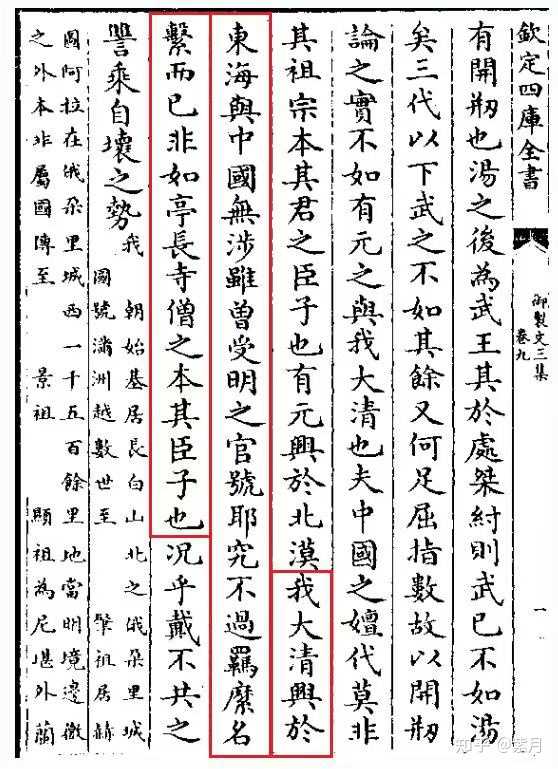 欽定四庫全書
御製文三集
卷九
一
有開剏也湯之後為武王其於處桀紂則武已不如湯
矣三代以下武之不如其餘又何足屈指數故以開剏
論之實不如有元之與我大清也夫中國之嬗代莫非
其祖宗本其君之臣子也有元興於北漠我大清興於
東海與中國無涉雖曾受明之官號耶究不過羈縻名
繫而已非如亭長寺僧之本其臣子也況乎戴不共之
讐乘自壞之勢
我 朝始基居長白山北之俄朶里城
國號滿洲越數世至 肇祖居赫
圖阿拉在俄朶里城西一千五百餘里地當明境邊徼
之外本非屬國傳至 景祖 顯祖為尼堪外蘭
知乎